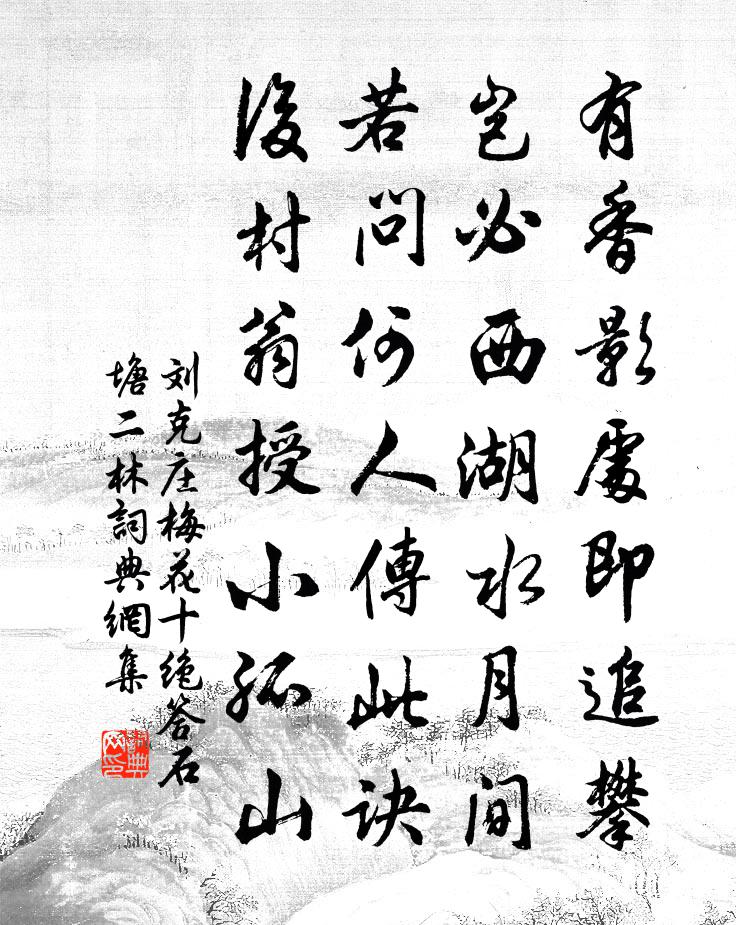 有香影處即追攀
豈必西湖水月間
若問何人傳此訣
後村翁授小孤山
刘克庄梅花十绝答石
塘二林詞典網集
詞典
网印